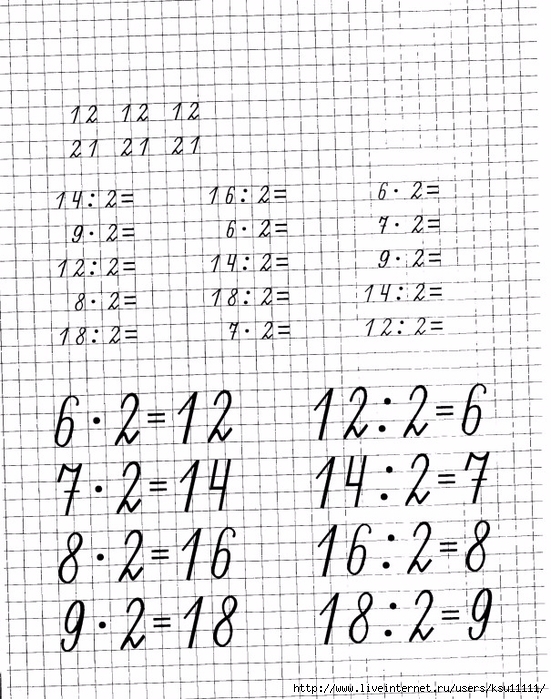 12 12 12
21 21 21
14: 2= 16: 2= 6· 2=
9· 2= 6· 2= 7· 2=
12: 2= 14: 2= 9· 2=
8· 2= 18: 2= 14: 2=
18: 2= 7· 2= 12: 2=
6·2=12 12:2=6
7·2=14 14:2=7
8·2=16 16:2=8
9·2=18 18:2=9
http://www.liveinternet.ru/users/ksu11111/